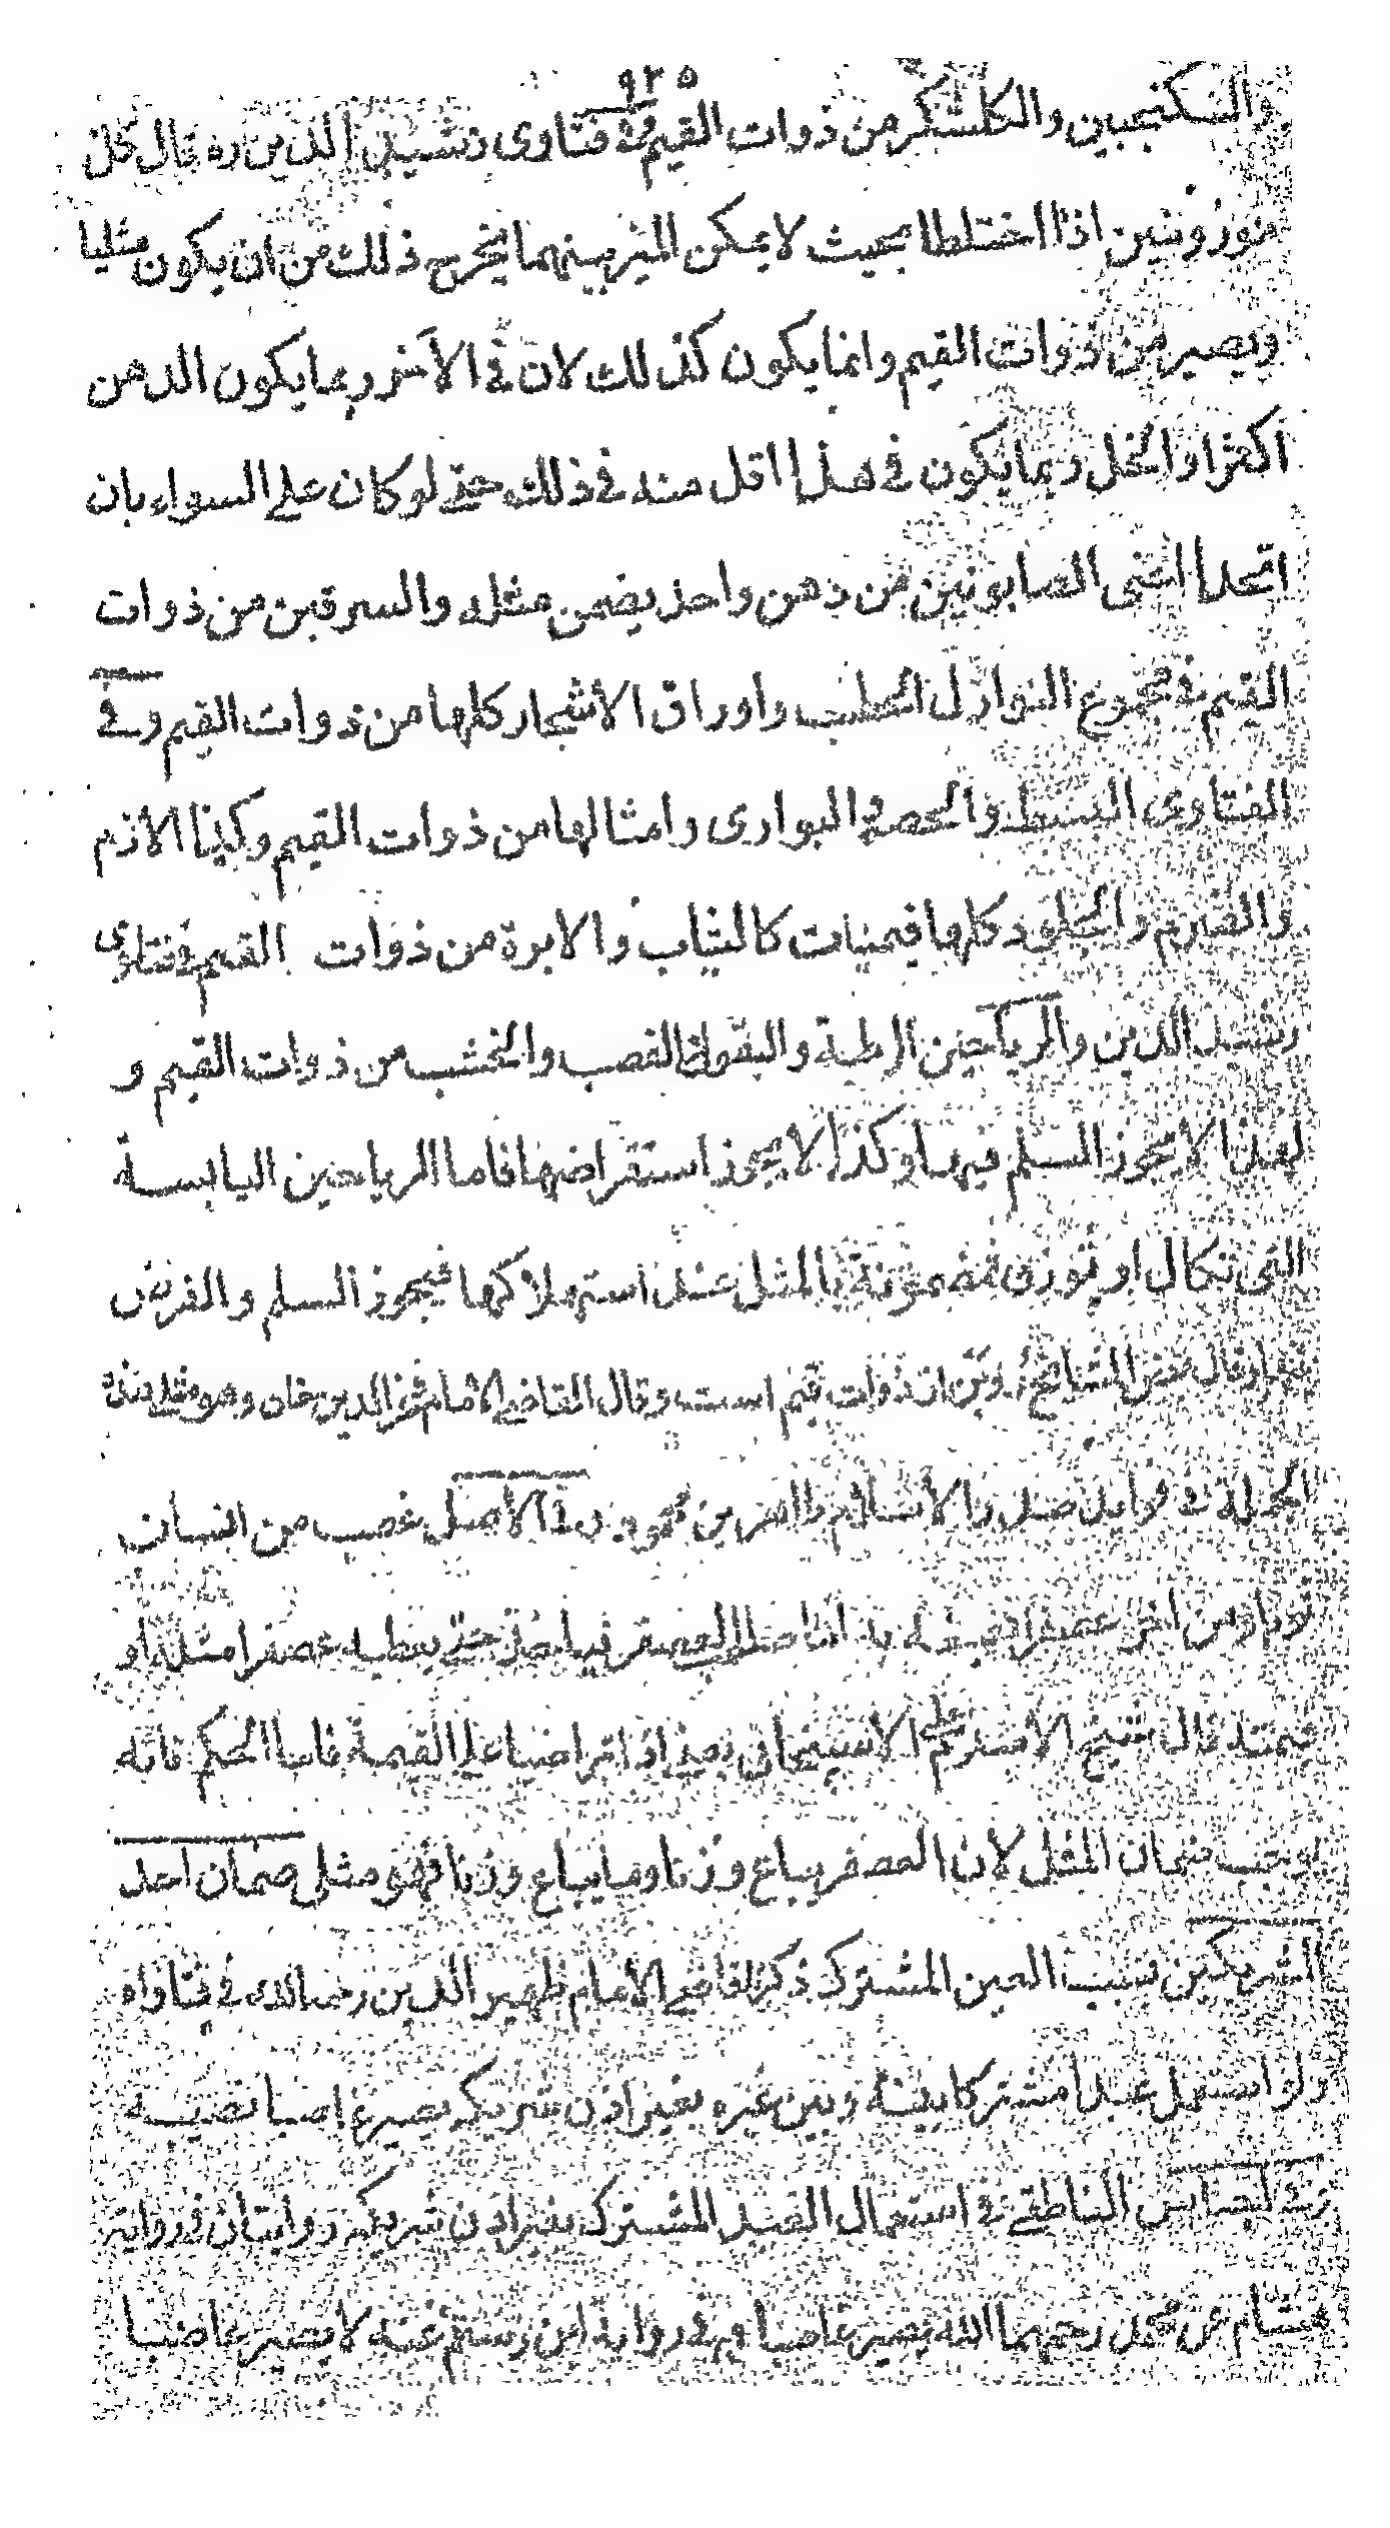 ٩٢٥
والسكنجبين والكلشكر من ذوات القيم وفى فتاوى رشيد الدين ره قال كل
موزونين اذا اختلطا بحيث لا يمكن الميز بينهما يخرج ذلك من ان يكون مثليا
ويصير من ذوات القيم وانما يكون كذلك لان فى الآخر ربما يكون الدهن
اكثر او الخل ربما يكون فى هذا اقل منه فى ذلك حتى لو كان على السواء بان
اتحدا اعنى الصابونين من دهن واحد يضمن مثله والسرقين من ذوات
القيم فى مجموع النوازل الحطب واوراق الاشجار كلها من ذوات القيم وفى
الفتاوى البسط والحصير البوارى وامثالها من ذوات القيم وكذا الادم
والصرم والجلود كلها قيميات كالثياب والابرة من ذوات القيم وفى فتاوى
رشيد الدين والرياحين الرطبة والبقول القصب والخشب من ذوات القيم و
لهذا لا يجوز السلم فيها وكذا لا يجوز استقراضها فاما الرياحين اليابسة
التى تكال او توزن مضمونة بالمثل عند استهلاكها فيجوز السلم والقرض
وقال بعض المشايخ از ذوات قيم است وقال القاضى الامام فخر الدين خان وهو مثلى
فى فوائد صدر الاسلام طاهر بن محمود فى الاصل غصب من انسان
ثوبا ومن اخر عصفرا فصبغه به اما صاحب العصفر فياخذه حتى يعطيه عصفرا مثله او
قيمته قال شيخ الاسلام الاستحسان اذا تراضيا على القيمة فاما الحكم فانه
يوجب ضمان المثل لان العصفر يباع وزنا وما يباع وزنا فهو مثلى ضمان احد
الشريكين بسبب العين المشترك ذكر القاضى الامام ظهير الدين رحمه الله فى فتاواه
ولو استعمل عبدا مشتركا بينه وبين غيره بغير اذن شريكه يصير غاصبا نصيبه
وفى اجناس الناطفى فى استعمال العبد المشترك بغير اذن شريكه روايتان فى رواية
هشام عن محمد رحمهما الله يصير غاصبا وفى رواية ابن رستم عنه لا يصير غاصبا